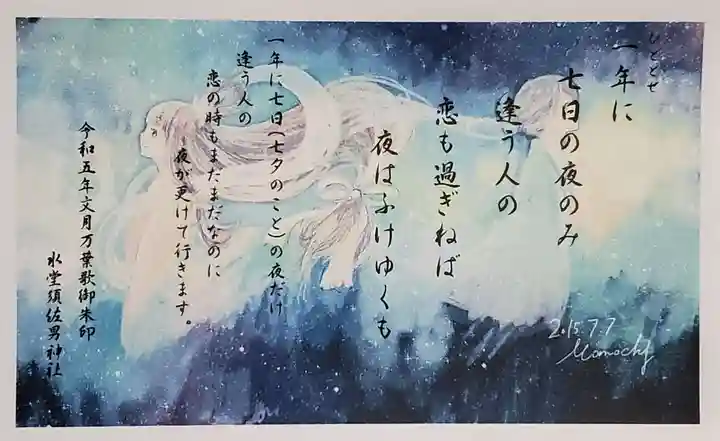 ひととせ
一年に
七日の夜のみ
逢う人の
恋も過ぎねば
夜はふけゆくも
一年に七日(七夕のこと)の夜だけ
逢う人の
恋の時もまだまだなのに
夜が更けて行きます。
令和五年文月万葉歌御朱印
水堂須佐男神社
2015.7.7